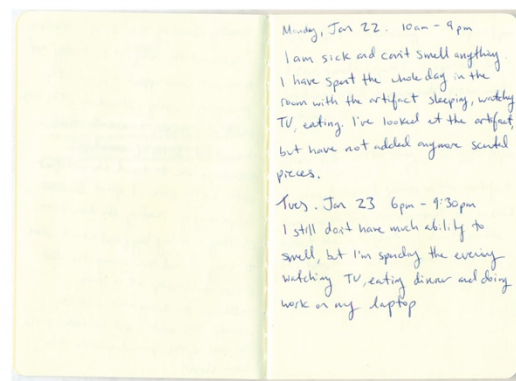 Monday, Jan 22. 10am - 9pm
I am sick and can't smell anything.
I have spent the whole day in the
room with the artifact sleeping, watching
TV, eating. I've looked at the artifact,
but have not added anymore scented
pieces.
Tues. Jan 23 6pm - 9:30pm
I still don't have much ability to
smell, but I'm spending the evening
watching TV, eating dinner and doing
work on my laptop